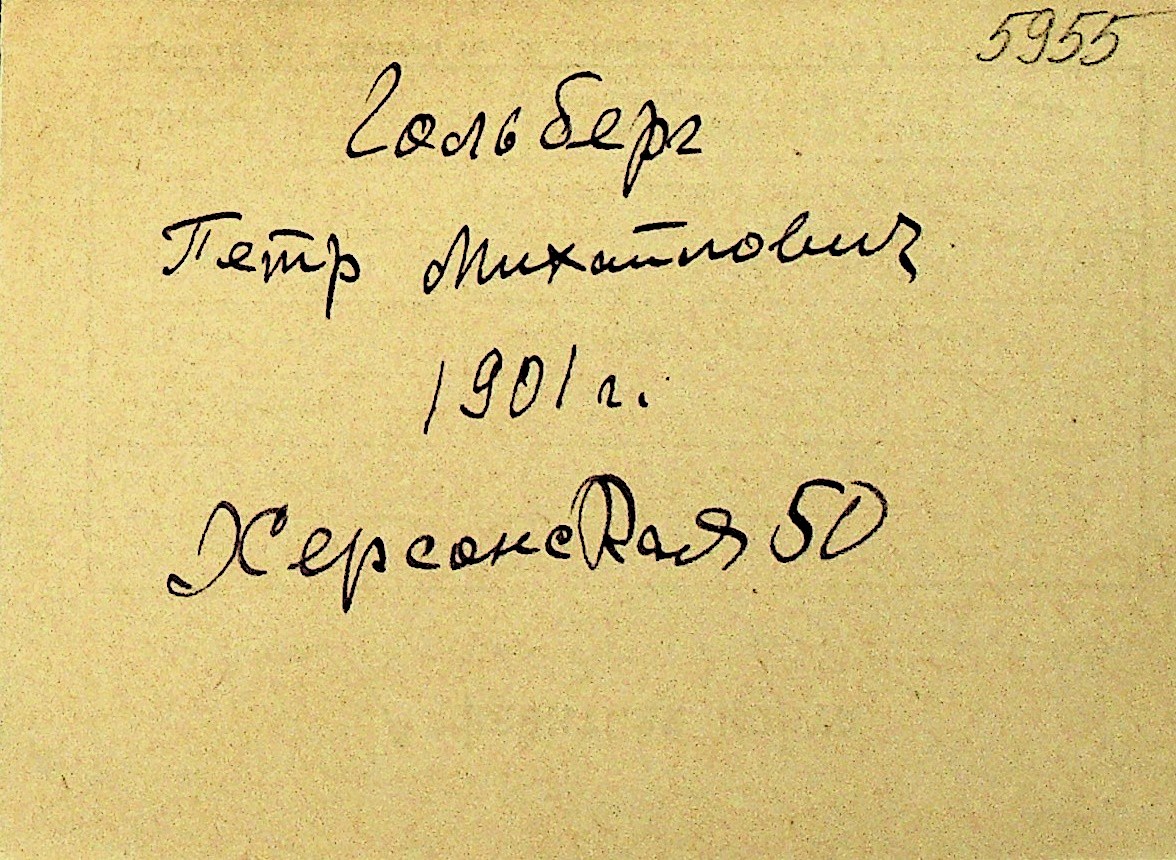 5955
Гольберг
Петр Михайлович
1901 г.
Херсонская 50